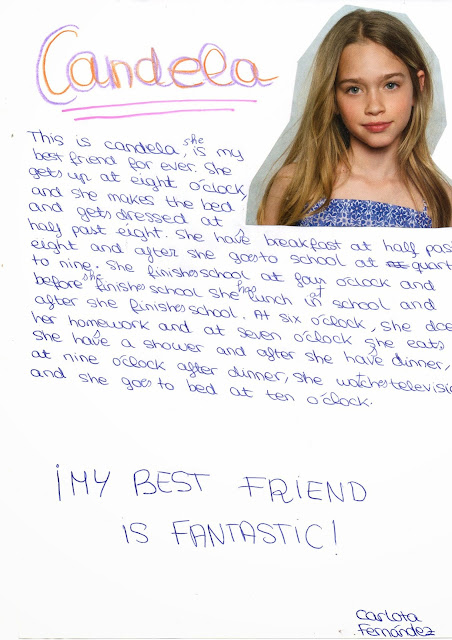 Candela
This is candela, she is my
best friend for ever. She
gets up at eight o'clock,
and she makes the bed,
and gets dressed at
half past eight. She have breakfast at half pas
eight and after she goes to school at quart
to nine. She finishes school at four o'clock and
before she finishes school she has lunch at school and
after she finishes school. At six o'clock, she doe
her homework and at seven o'clock she eats
She have a shower and after she have dinner,
at nine o'clock after dinner, she watches televisio
and she goes to bed at ten o'clock.
¡MY BEST FRIEND
IS FANTASTIC!
Carlota
Fernández